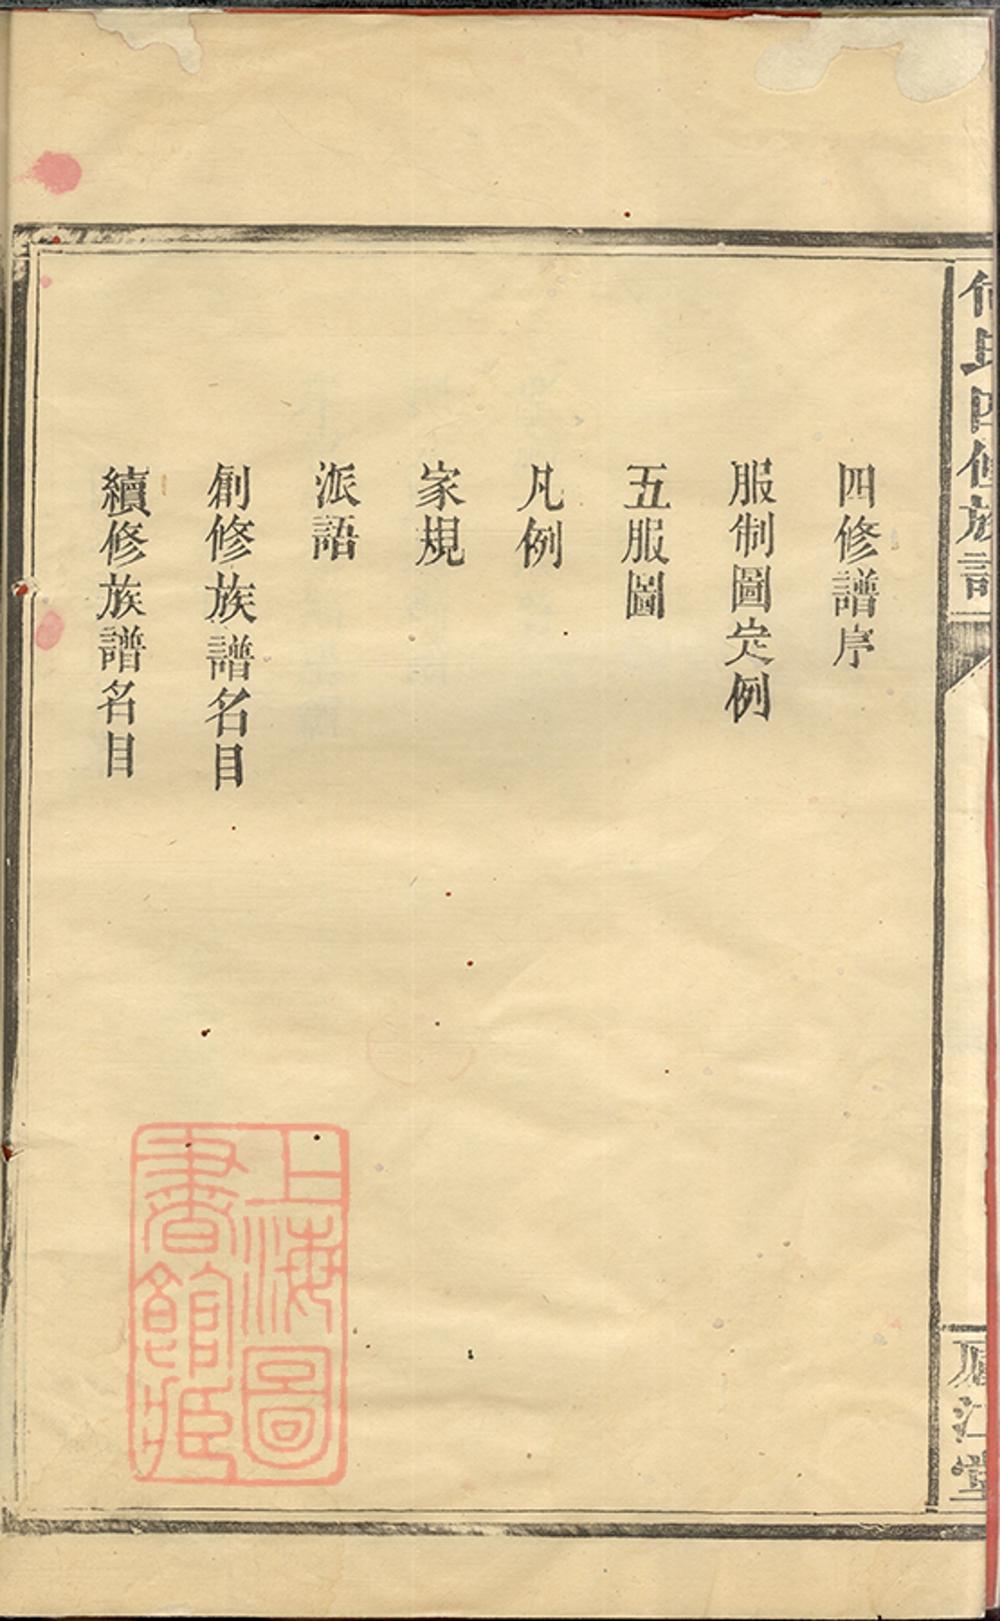 何氏四修族譜
四修譜序
服制圖定例
五服圖
凡例
家規
派語
創修族譜名目
續修族譜名目
江堂
上海圖
書館藏